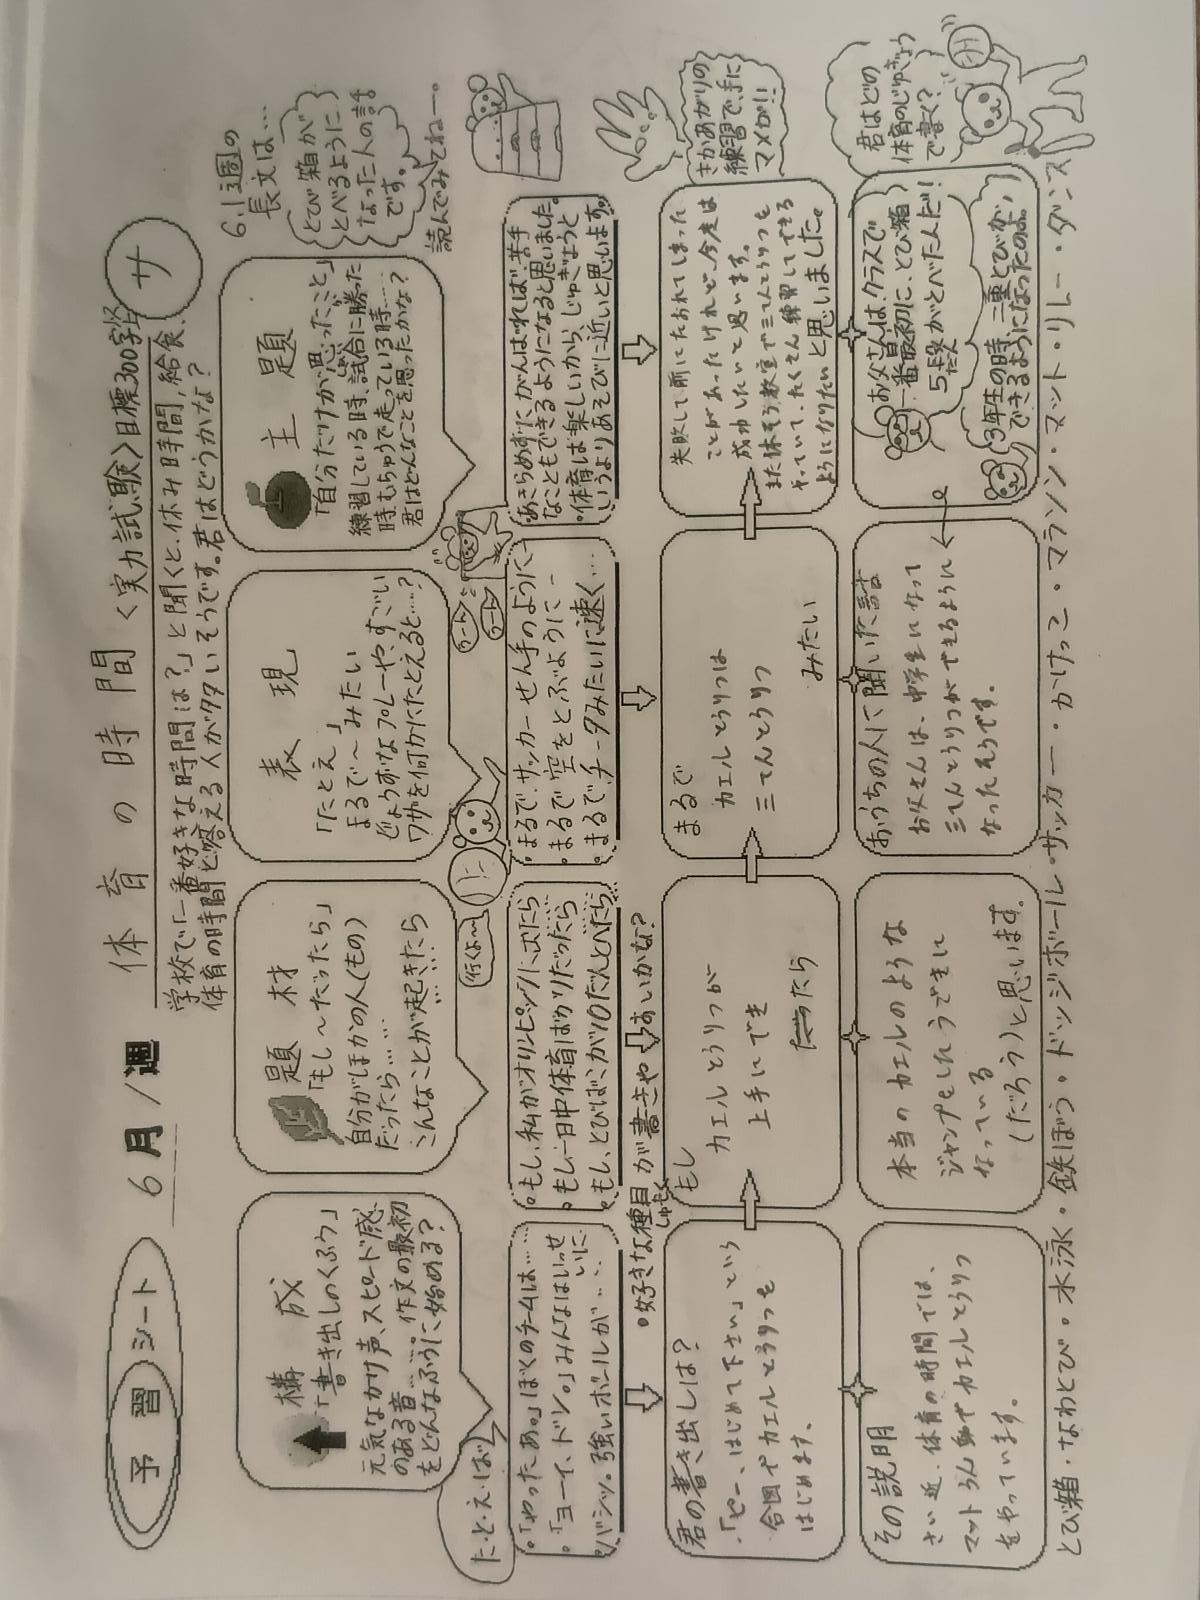 予習シート
6月1週
体育の時間
<実力試験>目標300字以上
サ
学校で「一番好きな時間は?」と聞くと、休み時間、給食、
体育の時間と答える人が多いそうです。君はどうかな?
構成
「書き出しのくふう」
元気なかけ声、スピード感
のある音……作文の最初
をどんなふうに始める?
題材
「もし〜だったら」
自分がほかの人(もの)
だったら……
こんなことが起きたら
……
表現
「たとえ」
まるで〜みたい
じょうずなプレーや、すごい
ワザを何かにたとえると……?
主題
「自分だけが思ったこと」
練習している時、試合に勝った
時、むちゅうで走っている時……
君はどんなことを思ったかな?
6.1週の
長文は…
とび箱が
とべるように
なった人の話
です。
読んでみてねー。
た・と・え・ば
。「やったあ。」ぼくのチームは……
。「ヨーイ、ドン。」みんなはいっせいに…
。バシッ。強いボールが……
行くよ〜
。もし、私がオリンピックに出たら…
。もし、一日中体育ばかりだったら…
。もし、とびばこが10だんとべたら…
。まるで、サッカーせん手のように…
。まるで空をとぶように…
。まるで、チータみたいに速く…
。あきらめずにがんばれば、苦手
なこともできるようになると思いました。
。体育は楽しいから、じゅぎょうと
いうよりあそびに近いと思います。
。好きな種目が書きやすいかな?
しゅもく
さかあがりの
練習で、手に
マメが!!
君の書き出しは?
「ピー、はじめて下さい」という
合図でカエルとうりつを
はじめます、
もし
カエルとうりつが
上手にでき
たら
まるで
カエルとうりつは
三てんとうりつ
みたい
失敗して前にたおれてしまった
ことがあったけれど、今度は
成功したいと思います。
また体そう教室で三てんとうりつを
やっていて、たくさん練習してできる
ようになりたいと思いました。
君はどの
体育のじゅぎょう
で書く?
その説明
さい近、体育の時間では、
マットうん動でカエルとうりつ
をやっています。
本当のカエルのような
ジャンプをしたうできに
なっている
(だろう)と思います。
おうちの人に聞いた話
お父さんは、中学生になって
三てんとうりつができるように
なったそうです。
お父さんは、クラスで
一番最初に、とび箱
5段がとべた人だ!
だん
3年生の時、二重とびが、
できるようになったのよ。
とび箱・なわとび・水泳・鉄ぼう・ドッジボール・サッカー・かけっこ・マラソン・マット・リレー・ダンス